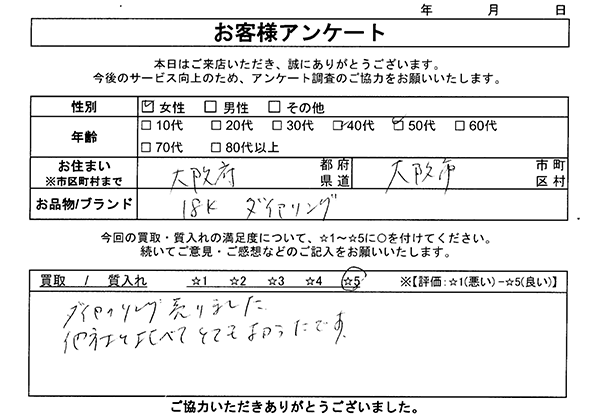 年　月　日
お客様アンケート
本日はご来店いただき、誠にありがとうございます。
今後のサービス向上のため、アンケート調査のご協力をお願いいたします。
性別 ☑ 女性 □ 男性 □ その他
年齢 □ 10代 □ 20代 □ 30代 ☑ 40代 ☑ 50代 □ 60代
□ 70代 □ 80代以上
お住まい 大阪府 都府 大阪市 市町
※市区町村まで 県道 区村
お品物/ブランド 18K ダイヤリング
今回の買取・質入れの満足度について、☆1～☆5に○を付けてください。
続いてご意見・ご感想などのご記入をお願いいたします。
買取 / 質入れ ☆1 ☆2 ☆3 ☆4 ☆5 ※【評価:☆1(悪い)−☆5(良い)】
ダイヤのリング売りました
他社と比べてとてもよかったです。
ご協力いただきありがとうございました。